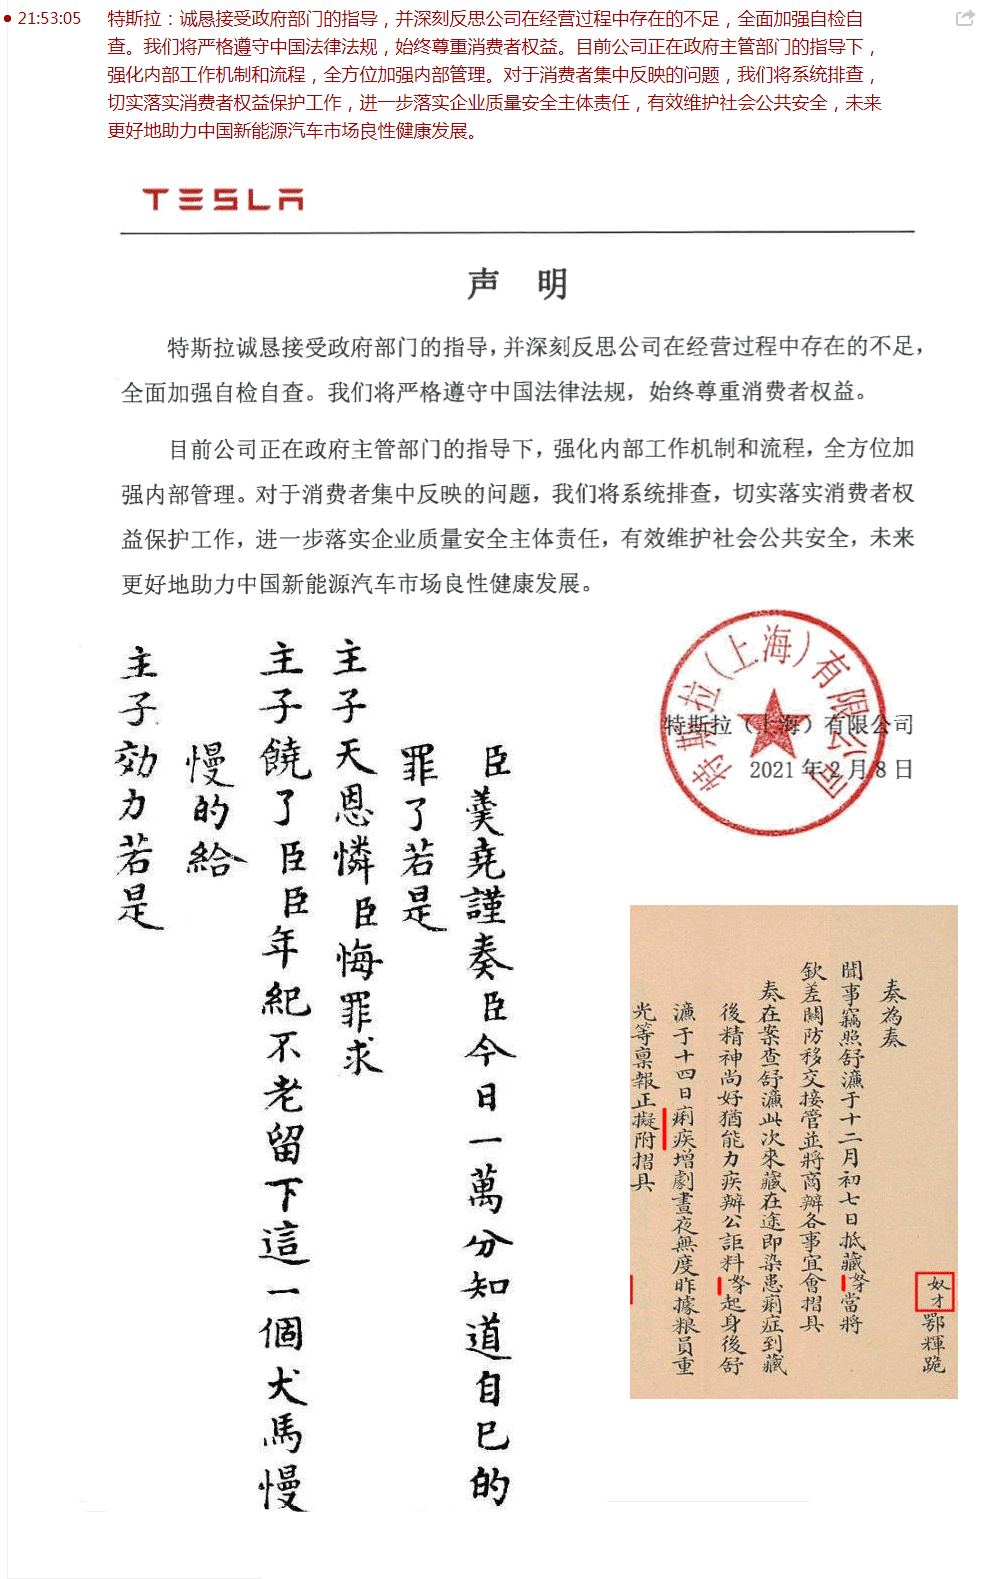 21:53:05
特斯拉：诚恳接受政府部门的指导，并深刻反思公司在经营过程中存在的不足，全面加强自检自
查。我们将严格遵守中国法律法规，始终尊重消费者权益。目前公司正在政府主管部门的指导下，
强化内部工作机制和流程，全方位加强内部管理。对于消费者集中反映的问题，我们将系统排查，
切实落实消费者权益保护工作，进一步落实企业质量安全主体责任，有效维护社会公共安全，未来
更好地助力中国新能源汽车市场良性健康发展。
TESLA
声 明
特斯拉诚恳接受政府部门的指导，并深刻反思公司在经营过程中存在的不足，
全面加强自检自查。我们将严格遵守中国法律法规，始终尊重消费者权益。
目前公司正在政府主管部门的指导下，强化内部工作机制和流程，全方位加
强内部管理。对于消费者集中反映的问题，我们将系统排查，切实落实消费者权
益保护工作，进一步落实企业质量安全主体责任，有效维护社会公共安全，未来
更好地助力中国新能源汽车市场良性健康发展。
特斯拉（上海）有限公司
特斯拉（上海）有限公司
2021年2月8日
臣羹尭謹奏臣今日一萬分知道自已的
罪了若是
主子天恩憐臣悔罪求
主子饒了臣臣年紀不老留下這一個犬馬慢
慢的給
主子効力若是
奴才鄂輝跪
奏為奏
聞事竊照舒濂于十二月初七日抵藏奴才當將
欽差關防移交接管並將商辦各事宜會摺具
奏在案查舒濂此次來藏在途即染患痢症到藏
後精神尚好猶能力疾辦公詎料奴才起身後舒
濂于十四日痢疾增劇晝夜無度昨據粮員重
光等禀報正擬附摺具